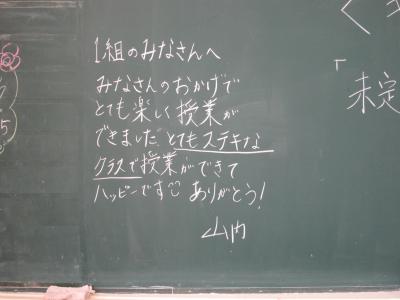 1組のみなさんへ
みなさんのおかげで
とても楽しく授業が
できました。とてもステキな
クラスで授業ができて
ハッピーです ありがとう!
山内
「
未定